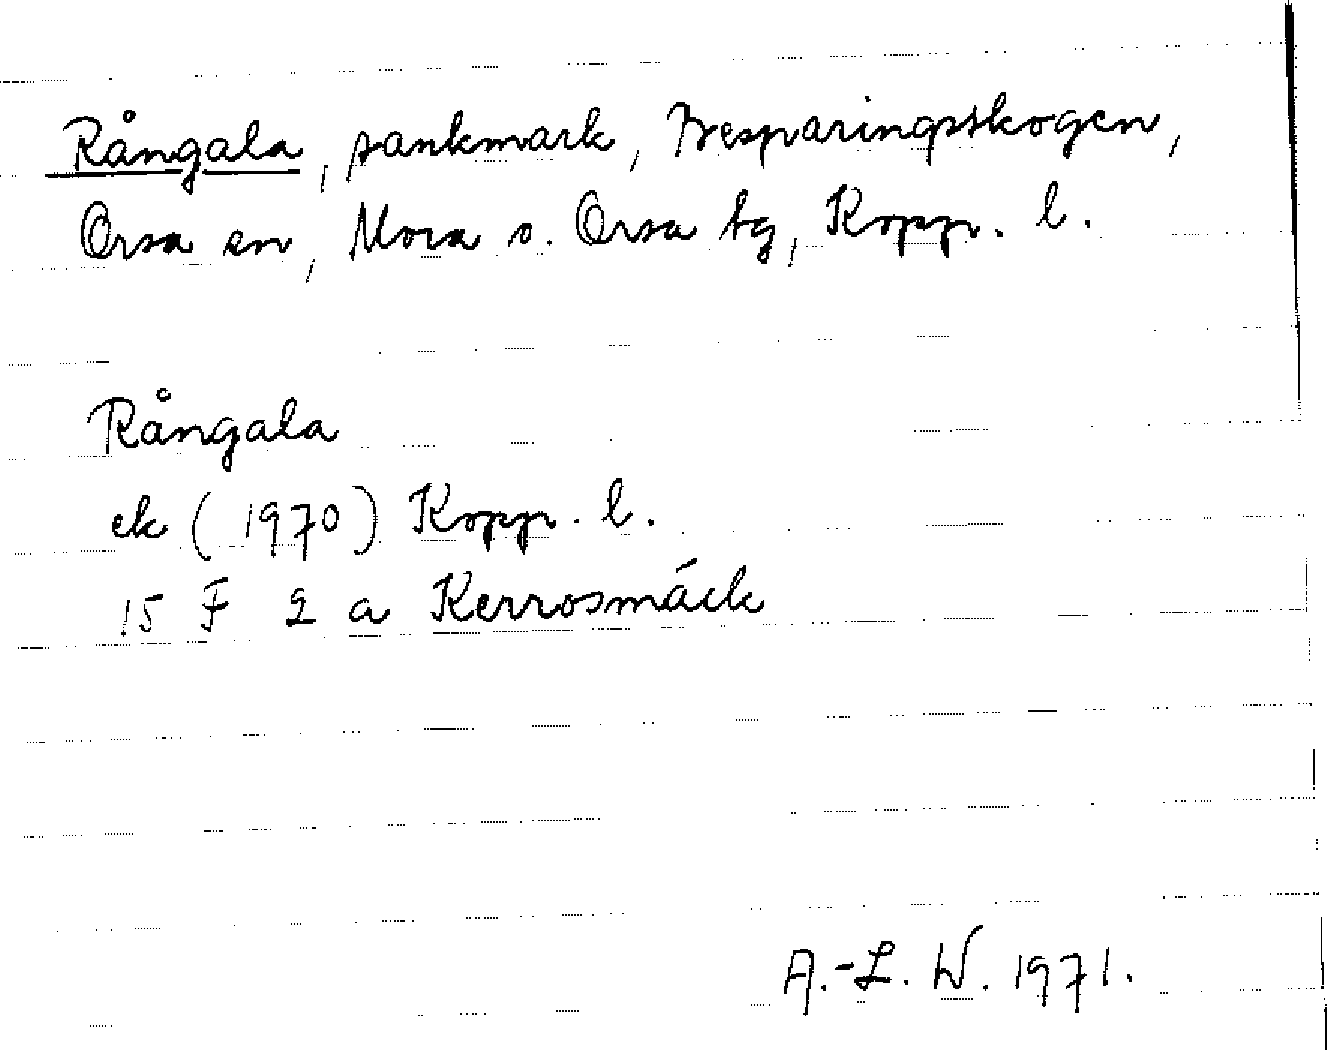 Rångala, sankmark, Besparingsskogen,
Orsa sn, Mora o. Orsa tg, Kopp. l.
Rångala
ek (1970) Kopp. l.
15 F 2 a Kerrosmäck
A.-L. W. 1971.